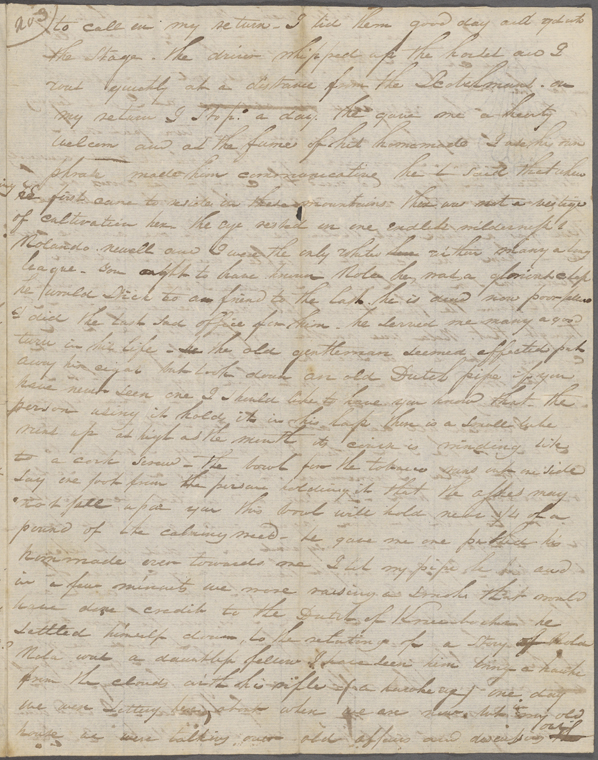 to call in my return - I bid them good day and
the Stage. the driver whipped up the horses and I
was quickly at a distance from the Scotchmans. on
my return I stopt a day. he gave me a hearty
welcom and as the fumes of his homemade
made him communicating he said that when
he first came to reside in these mountains there was not a vestige
of cultivation here the eye rested in one endless wilderness
Rolando newell and I were the only white within many a long
league - You ought to have known Rolea he was a glorious chap
he would stick to a friend to the last he is dead now poor
I did the last sad office for him - he served me many a good
turn in his life - the old gentleman seemed affected put
away his segar but took down an old Dutch pipe if you
have never seen one I would like to have you know that the
person using it holds it in his lap there is a small tube
runs up as high as the mouth it comes a winding like
to a cork screw - the bowl for the tobacco runs out on side
say one foot from the person holding it that the ashes may
not fall upon you this bowl will hold near 1/4 of a
pound of the calming weed - he gave me one pushed his
homemade over towards me I lit my pipe he his and
in a few minutes we were raising a smoke that would
have done credit to the Dutch of Knickerbocker he
settled himself down to the relating of a story of
Rolea was a dauntless fellow I have seen him bring a hawke
from the clouds with his rifle one day
we were sitting about where we are now but my old
house we were talking over old affairs and